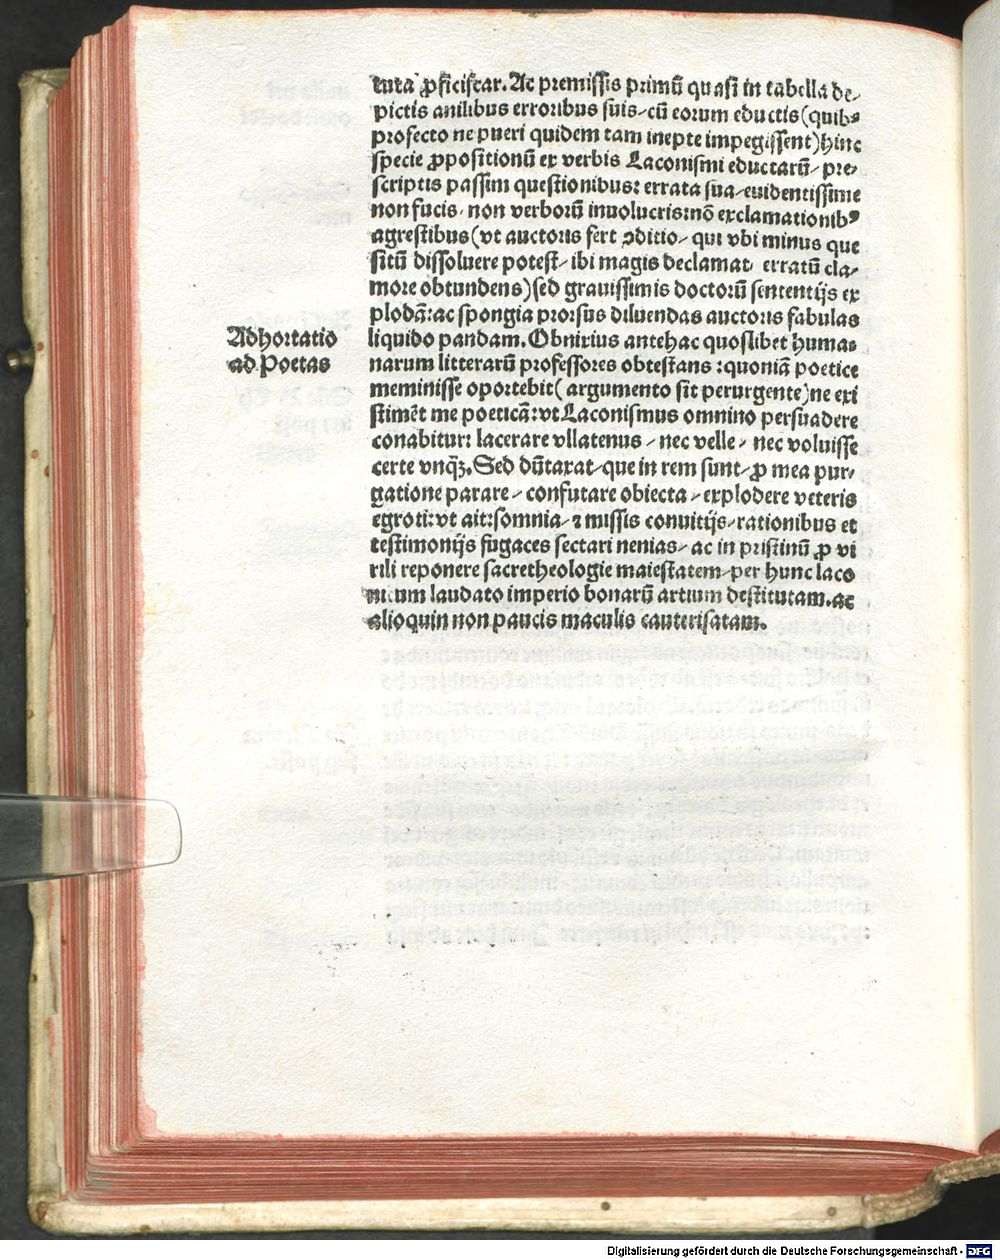 tuta ꝓficiscar. Ac premissis primũ quasi in tabella de⸗
pictis anilibus erroribus suis/cũ eorum eductis(quibꝰ
profecto ne pueri quidem tam inepte impegissent)hinc
specie ꝓpositionũ ex verbis Laconismi eductarũ/pre⸗
scriptis passim questionibus: errata sua/euidentissime
non fucis. non verborũ inuolucris:nõ exclamationibꝰ
agrestibus(vt auctoris fert ↄditio/ qui vbi minus que
sitũ dissoluere potest/ ibi magis declamat/ erratũ cla⸗
more obtundens)sed grauissimis doctorũ sententijs ex
plodã:ac spongia prorsus diluendas auctoris fabulas
Adhortatio
ad Poetas
liquido pandam. Obnixius antehac quoslibet huma⸗
narum litterarũ professores obtestans :quoniã poetice
meminisse oportebit( argumento sit perurgente)ne exi
stimẽt me poeticã:vt Laconismus omnino persuadere
conabitur: lacerare vllatenus/ nec velle/ nec voluisse
certe vnq̃ꝫ. Sed dũtaxat/que in rem sunt/ꝓ mea pur⸗
gatione parare/ confutare obiecta/explodere veteris
egroti:vt ait:somnia/⁊ missis conuitijs/rationibus et
testimonijs fugaces sectari nenias/ ac in pristinũ ꝓ vi
rili reponere sacretheologie maiestatem/per hunc laco
nicum laudato imperio bonarũ artium destitutam.ac
alioquin non paucis maculis cauterisatam.
Digitalisierung gefördert durch die Deutsche Forschungsgemeinschaft - DFG